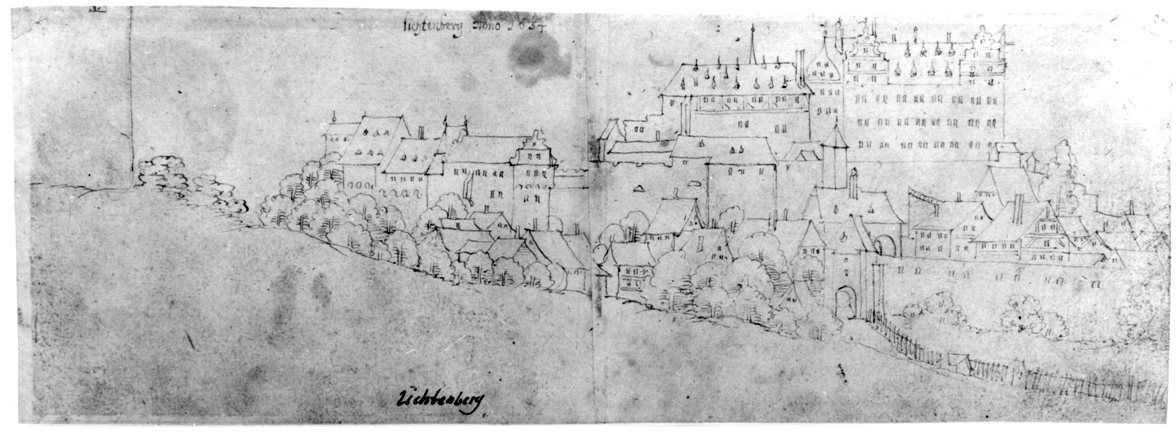 lichtenberg Anno 1637
Lichtenberg